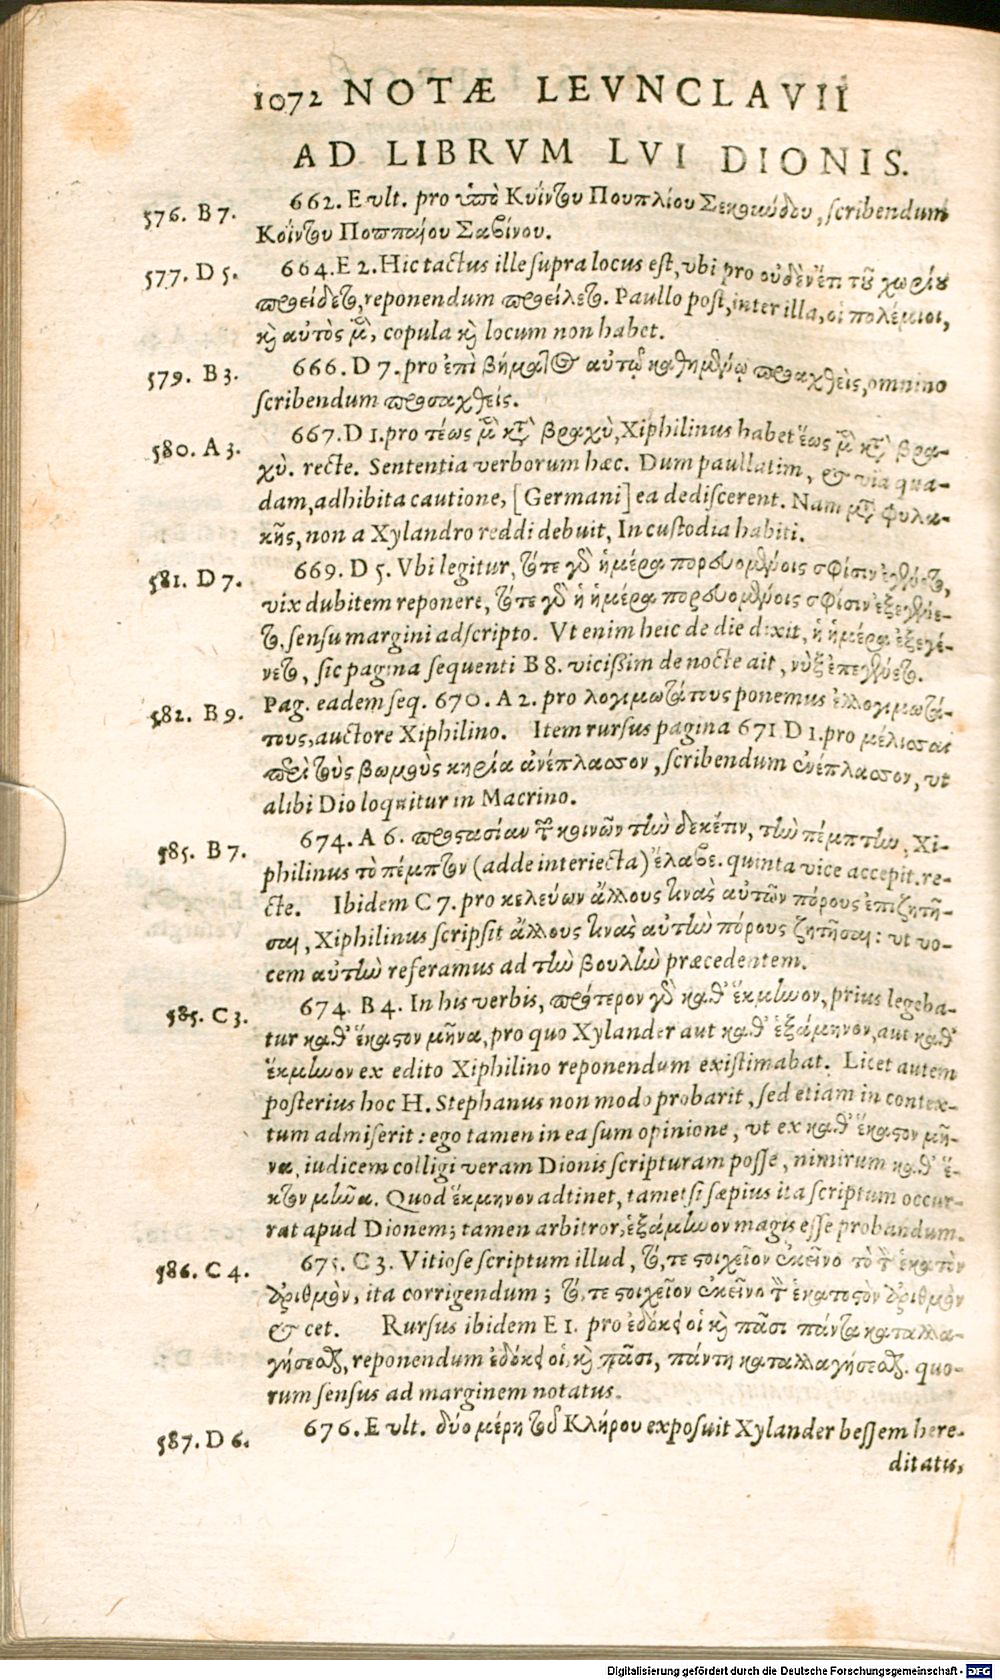 1072 NOTÆ LEVNCLAVII
AD LIBRVM LVI DIONIS.
576. B 7. 662. E vlt. pro ὑπὸ Κυΐντου Πουπλίου Σεκούνδου, scribendum
Κοΐντου Ποππαίου Σαβίνου.
577. D 5. 664. E 2. Hic tactus ille supra locus est, vbi pro οὐδὲν ἔτι τοῦ χωρίου
προείδετο, reponendum προείλετο. Paullo post, inter illa, οἱ πολέμιοι,
καὶ αὐτὸς μὲν, copula καὶ locum non habet.
579. B 3. 666. D 7. pro ἐπὶ βήματος αὐτῷ καθημένῳ προαχθεὶς, omnino
scribendum προσαχθείς.
580. A 3. 667. D 1. pro τέως μὲν κατὰ βραχὺ, Xiphilinus habet ἕως μὲν κατὰ βρα-
χύ. recte. Sententia verborum hæc. Dum paullatim, & via qua-
dam, adhibita cautione, [Germani] ea dediscerent. Nam μετὰ φυλα-
κῆς, non a Xylandro reddi debuit, In custodia habiti.
581. D 7. 669. D 5. Vbi legitur, τότε γὰρ ἡμέρα πορευομένοις σφίσιν ἐγένετο,
vix dubitem reponere, τότε γὰρ ἡ ἡμέρα πορευομένοις σφίσιν ἐξεγένε-
το, sensu margini adscripto. Vt enim heic de die dixit, ἡ ἡμέρα ἐξεγέ-
νετο, sic pagina sequenti B 8. vicißim de nocte ait, νὺξ ἐπεγένετο.
582. B 9. Pag. eadem seq. 670. A 2. pro λογιμωτάτους ponemus ἐλλογιμωτά-
τους, auctore Xiphilino. Item rursus pagina 671 D 1. pro μέλισσαι
περὶ τοὺς βωμοὺς κηρία ἀνέπλασσον, scribendum ἐνέπλασσον, vt
alibi Dio loquitur in Macrino.
585. B 7. 674. A 6. προστασίαν τῶν κοινῶν τὴν δεκέτιν, τὴν πέμπτην, Xi-
philinus τὸ πέμπτον (adde interiecta) ἔλαβε. quinta vice accepit. re-
cte. Ibidem C 7. pro κελεύων ἄλλους τινὰς αὐτῶν πόρους ἐπιζητῆ-
σαι, Xiphilinus scripsit ἄλλους τινὰς αὐτὴν πόρους ζητῆσαι: vt vo-
cem αὐτὴν referamus ad τὴν βουλὴν præcedentem.
585. C 3. 674. B 4. In his verbis, πρότερον γὰρ καθ' ἕκμηνον, prius legeba-
tur καθ' ἕκαστον μῆνα, pro quo Xylander aut καθ' ἑξάμηνον, aut καθ'
ἕκμηνον ex edito Xiphilino reponendum existimabat. Licet autem
posterius hoc H. Stephanus non modo probarit, sed etiam in contex-
tum admiserit: ego tamen in ea sum opinione, vt ex καθ' ἕκαστον μῆ-
να, iudicem colligi veram Dionis scripturam posse, nimirum καθ' ἕ-
κτον μῆνα. Quod ἕκμηνον adtinet, tametsi sæpius ita scriptum occur-
rat apud Dionem; tamen arbitror, ἑξάμηνον magis esse probandum.
586. C 4. 675. C 3. Vitiose scriptum illud, τό, τε στοιχεῖον ἐκεῖνο τὸ τῶν ἑκατὸν
ἀριθμὸν, ita corrigendum; τό, τε στοιχεῖον ἐκεῖνο τὸν ἑκατοστὸν ἀριθμὸν
& cet. Rursus ibidem E 1. pro ἐδόκει οἱ καὶ πᾶσι πάντα καταλλα-
γήσεσθαι, reponendum ἐδόκει οἱ, καὶ πᾶσι, πάντη καταλλαγήσεσθαι. quo-
rum sensus ad marginem notatus.
587. D 6. 676. E vlt. δύο μέρη τοῦ Κλήρου exposuit Xylander bessem here-
ditatis,
Digitalisierung gefördert durch die Deutsche Forschungsgemeinschaft - DFG